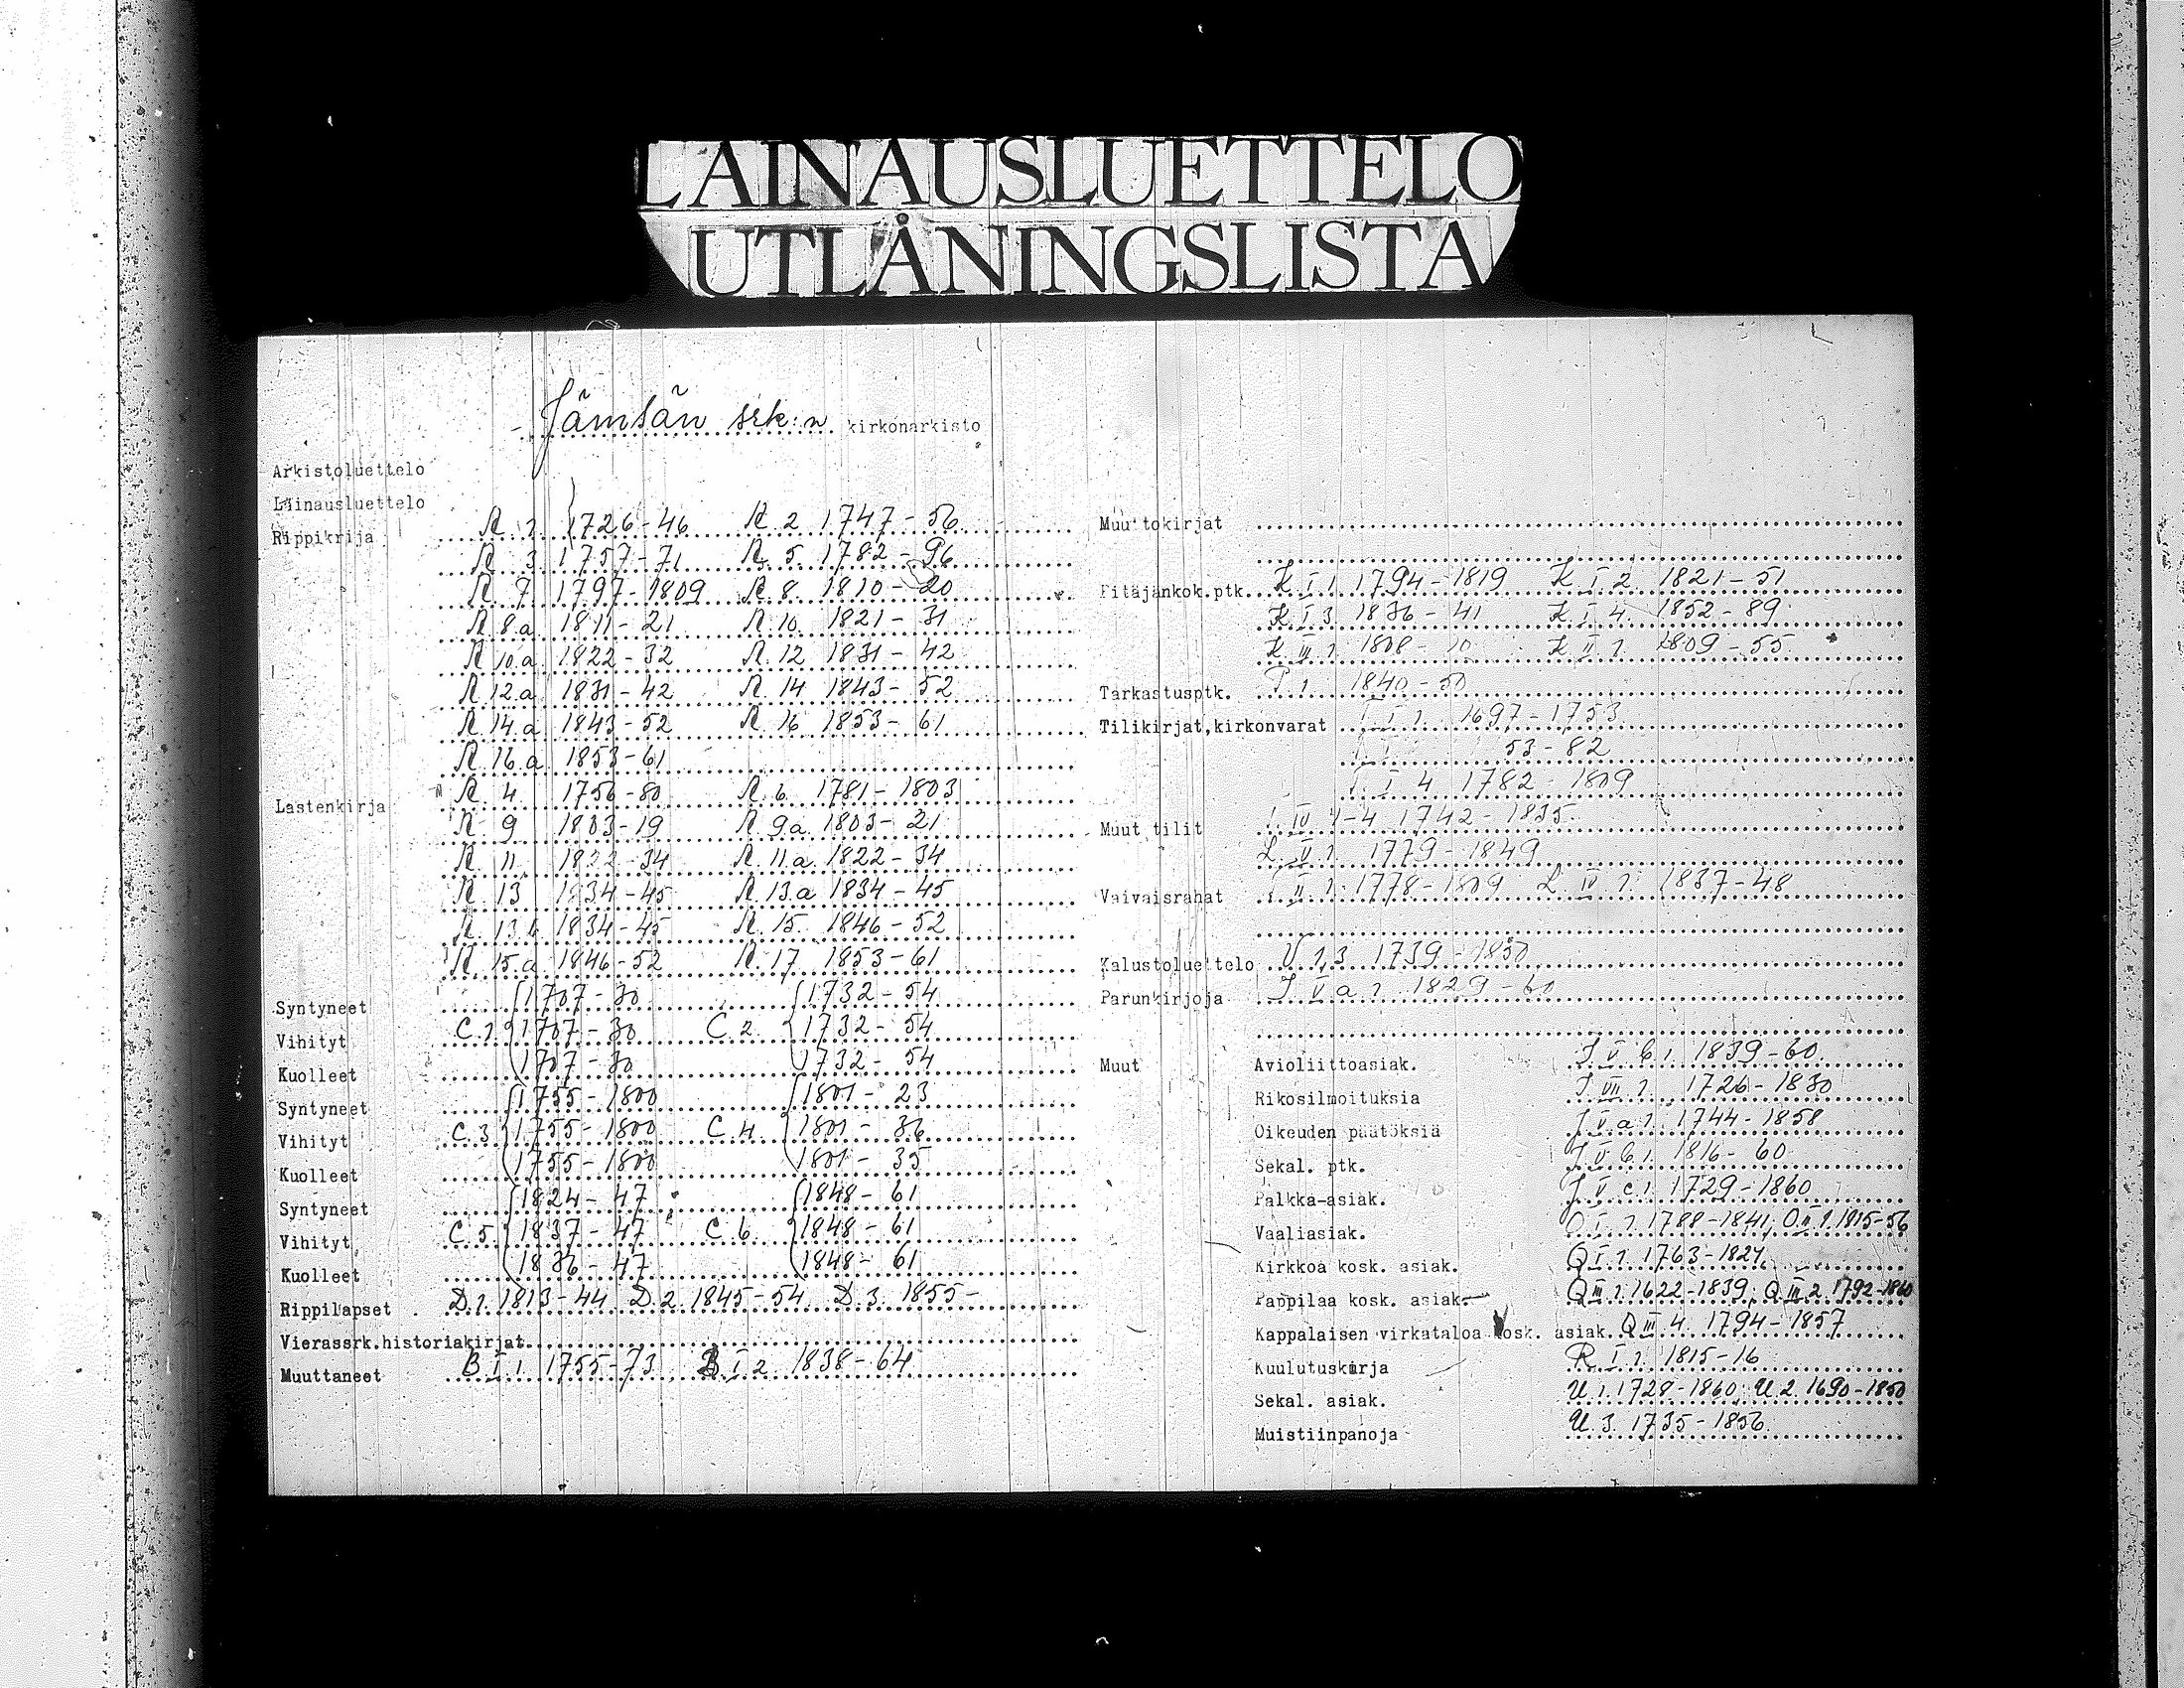 LAINAUSLUETTELO
UTLÅNINGSLISTA
Jämsän srk:n kirkonarkisto
Arkistoluettelo
Lainausluettelo
Rippikrija R. 1 1726-46 R. 2 1747-56
R. 3 1757-71 R. 5 1782-96
R. 7. 1797-1809 R. 8. 1810-20
R. 8.a. 1811-21 R. 10 1821-31
R. 10.a. 1822-32 R. 12 1831-42
R. 12.a. 1831-42 R. 14 1843-52
R. 14.a 1843-52 R. 16 1853-61
R. 16.a 1853-61
Lastenkirja R. 4 1756-80 R. 6 1781-1803
R. 9 1803-19 R. 9.a. 1803-21
R. 11 1822-34 R. 11.a. 1822-34
R. 13 1834-45 R. 13.a 1834-45
R. 13.b. 1834-45 R. 15. 1846-52
R. 15.a 1846-52 R. 17 1853-61
Syntyneet 1707-30 1732-54
Vihityt C. 1 1707-30 C. 2. 1732-54
Kuolleet 1707-30 1732-54
Syntyneet 1755-1800 1801-23
Vihityt C. 3 1755-1800 C. 4. 1801-36
Kuolleet 1755-1800 1801-35
Syntyneet 1824-47 1848-61
Vihityt C. 5. 1837-47 C. 6. 1848-61
Kuolleet 1836-47 1848-61
Rippilapset D. 1. 1813-44 D. 2. 1845-54 D. 3. 1855-
Vierassrk.historiakirjat
Muuttaneet B I 1 1755-73 B I 2 1838-64
Muuttokirjat
Pitäjänkok.ptk. K I 1 1794-1819 K I 2 1821-51
K I 3 1836-41 K I 4 1852-89
K III 1. 1808-10 K II 1. 1809-55
Tarkastusptk. P. 1. 1840-50
Tilikirjat,kirkonvarat I 1. 1697-1753
53-82
I 4 1782-1809
Muut tilit IV 1-4 1742-1835
L. V. 1. 1779-1849
Vaivaisrahat II. 1. 1778-1809 L. IV. 1. 1837-48
Kalustoluettelo U 1,3 1739-1850
Parunkirjoja J V. a. 1 1829-60
Muut Avioliittoasiak. J V b. 1. 1839-60.
Rikosilmoituksia J VII. 1. 1726-1830
Oikeuden päätöksiä J V. a 1. 1744-1858
Sekal. ptk. J V b. 1. 1816-60
Palkka-asiak. J V. c. 1. 1729-1860
Vaaliasiak. O I. 1. 1788-1841; O. II 1. 1815-56
Kirkkoa kosk. asiak. Q I. 1. 1763-1824
Pappilaa kosk. asiak. Q III. 1. 1622-1839; Q III 2. 1792-1860
Kappalaisen virkataloa kosk. asiak. Q III. 4. 1794-1857
Kuulutuskirja R I. 1. 1815-16
Sekal. asiak. U. 1. 1728-1860; U. 2. 1690-1850
Muistiinpanoja U. 3. 1735-1856.